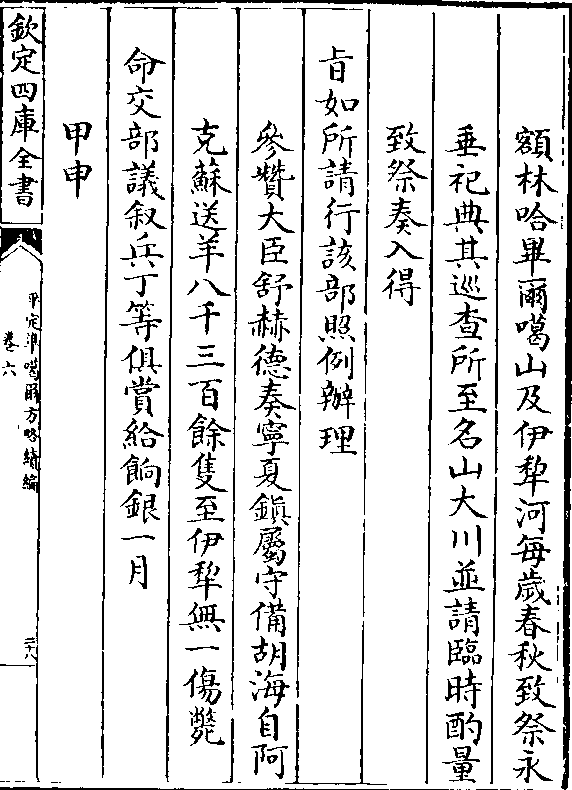 額林哈畢爾噶山及伊犂河每歲春秋致祭永
垂祀典其巡查所至名山大川並請臨時酌量
致祭奏入得
旨如所請行該部照例辦理
參贊大臣舒赫德奏寧夏鎮屬守備胡海自阿
克蘇送羊八千三百餘隻至伊犂無一傷斃
命交部議叙兵丁等俱賞給餉銀一月
甲申
欽定四庫全書
平定準噶爾方略續編
卷六
二八